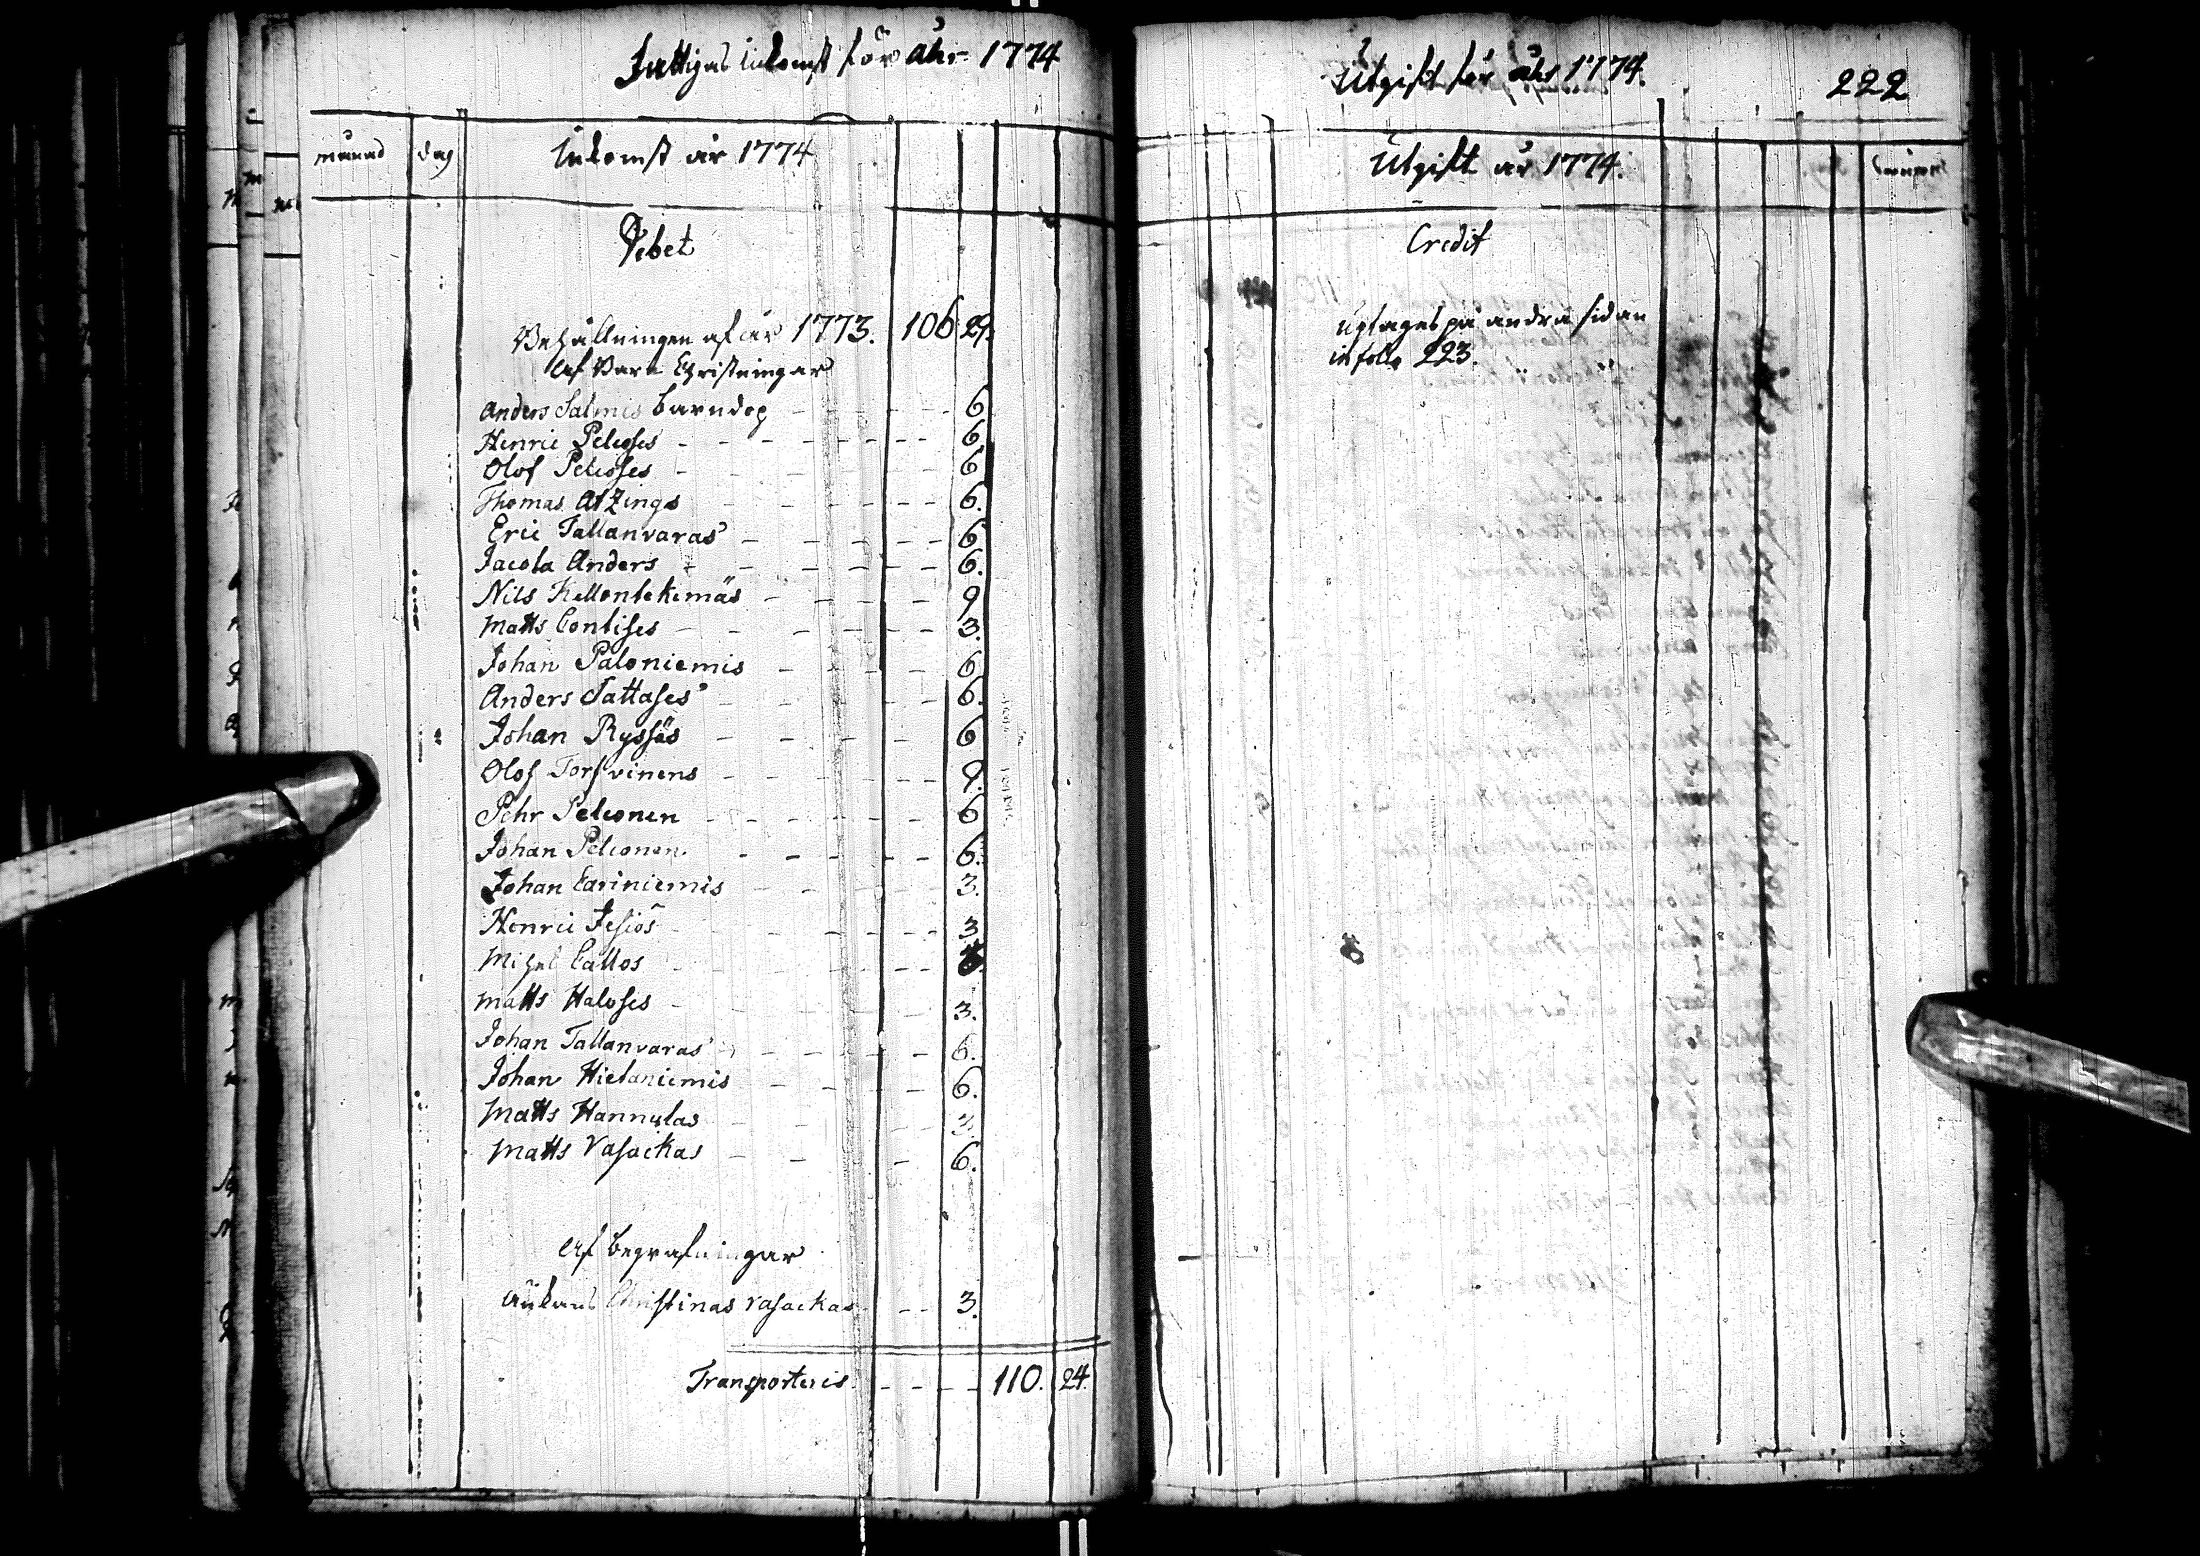 Fattigas Inkomst för åhr 1774
månad dag Inkomst år 1774
Debet
Behållningen af år 1773. 106 29.
Af Barn Christningar
Anders Salmis barndop - - - - 6
Henric Pelcoses - - - - - - - - 6
Olof Pelcoses - - - - - - - 6
Thomas Alzings - - - - - 6.
Eric Tallanvaras - - - - - - 6
Jacola Anders - - - - - - 6.
Nils Kellontekemäs - - - - - 9
Matts Contises - - - - - - 3.
Johan Paloniemis - - - - - 6
Anders Sattases - - - - - 6.
Johan Ryssäs - - - - - - 6
Olof Torfvinens - - - - - - 9.
Pehr Pelconen - - - - - - 6
Johan Pelconen. - - - - - 6.
Johan Cariniemis - - - - - 3.
Henric Jesiös - - - - - - 3
Michel Callos - - - - -
Matts Haloses - - - - - - 3.
Johan Tallanvaras - - - - - 6.
Johan Hietaniemis - - - - 6.
Matts Hannulas - - - - - 3.
Matts Vasackas - - - 6.
Af begrafningar
Änkans Christinas Vasackas - - 3.
Transporteris - - - - 110. 24.
Utgift för åhr 1774. 222
Utgift år 1774.
Credit
uptages på andra sidan
in folio 223.